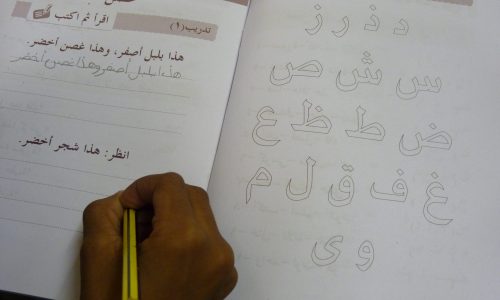 تدريب (١)
اقرأ ثم اكتب
هذا بلبل أصفر، وهذا غصن أخضر.
هذا بلبل أصفر وهذا غصن أخضر
انظر: هذا شجر أخضر.
د ذ ر ز
س ش ص
ض ط ظ ع
غ ف ق ل م
و ي